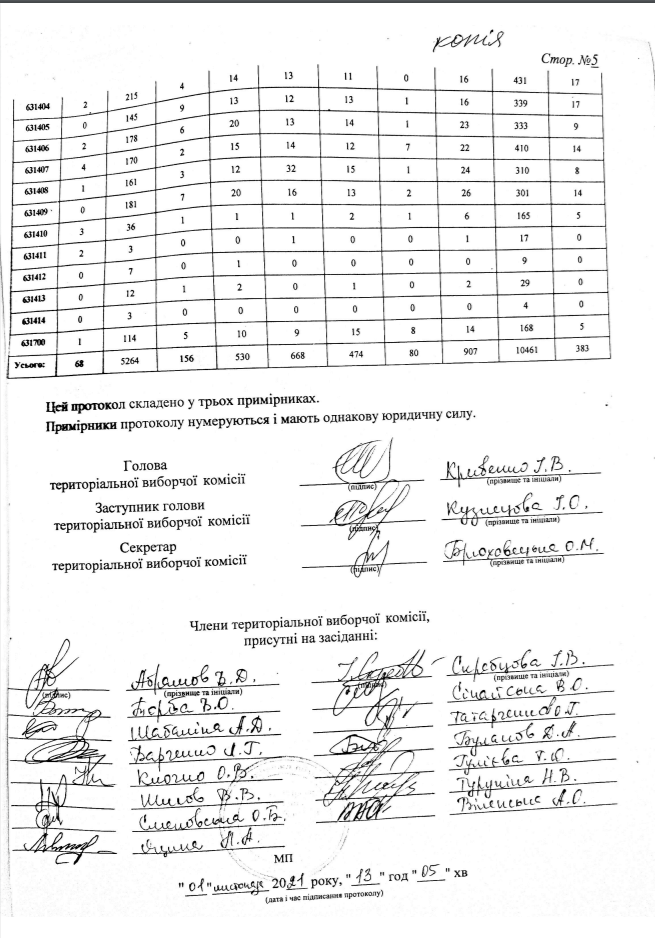 копія
Стор. №5
631404 2 215 4 14 13 11 0 16 431 17
631405 0 145 9 13 12 13 1 16 339 17
631406 2 178 6 20 13 14 1 23 333 9
631407 4 170 2 15 14 12 7 22 410 14
631408 1 161 3 12 32 15 1 24 310 8
631409 0 181 7 20 16 13 2 26 301 14
631410 3 36 1 1 1 2 1 6 165 5
631411 2 3 0 0 1 0 0 1 17 0
631412 0 7 0 1 0 0 0 0 9 0
631413 0 12 1 2 0 1 0 2 29 0
631414 0 3 0 0 0 0 0 0 4 0
631700 1 114 5 10 9 15 8 14 168 5
Усього: 68 5264 156 530 668 474 80 907 10461 383
Цей протокол складено у трьох примірниках.
Примірники протоколу нумеруються і мають однакову юридичну силу.
Голова
територіальної виборчої комісії Кривенко І.В.
(підпис) (прізвище та ініціали)
Заступник голови
територіальної виборчої комісії Кузнецова Г.О.
(підпис) (прізвище та ініціали)
Секретар
територіальної виборчої комісії Бриховецька О.М.
(підпис) (прізвище та ініціали)
Члени територіальної виборчої комісії,
присутні на засіданні:
Абрамов В.Д. Скребцова І.В.
(підпис) (прізвище та ініціали) (підпис) (прізвище та ініціали)
В.О. В.О.
Шабаніна А.Д. Татаргенко О.Г.
Варченко Л.Г. Буланов Д.А.
О.В. Гулієва Т.О.
Шилов В.В. Турупіна Н.В.
О.Б. А.О.
Яцина Л.А.
МП
"01" листопада 2021 року, "13" год "05" хв
(дата і час підписання протоколу)